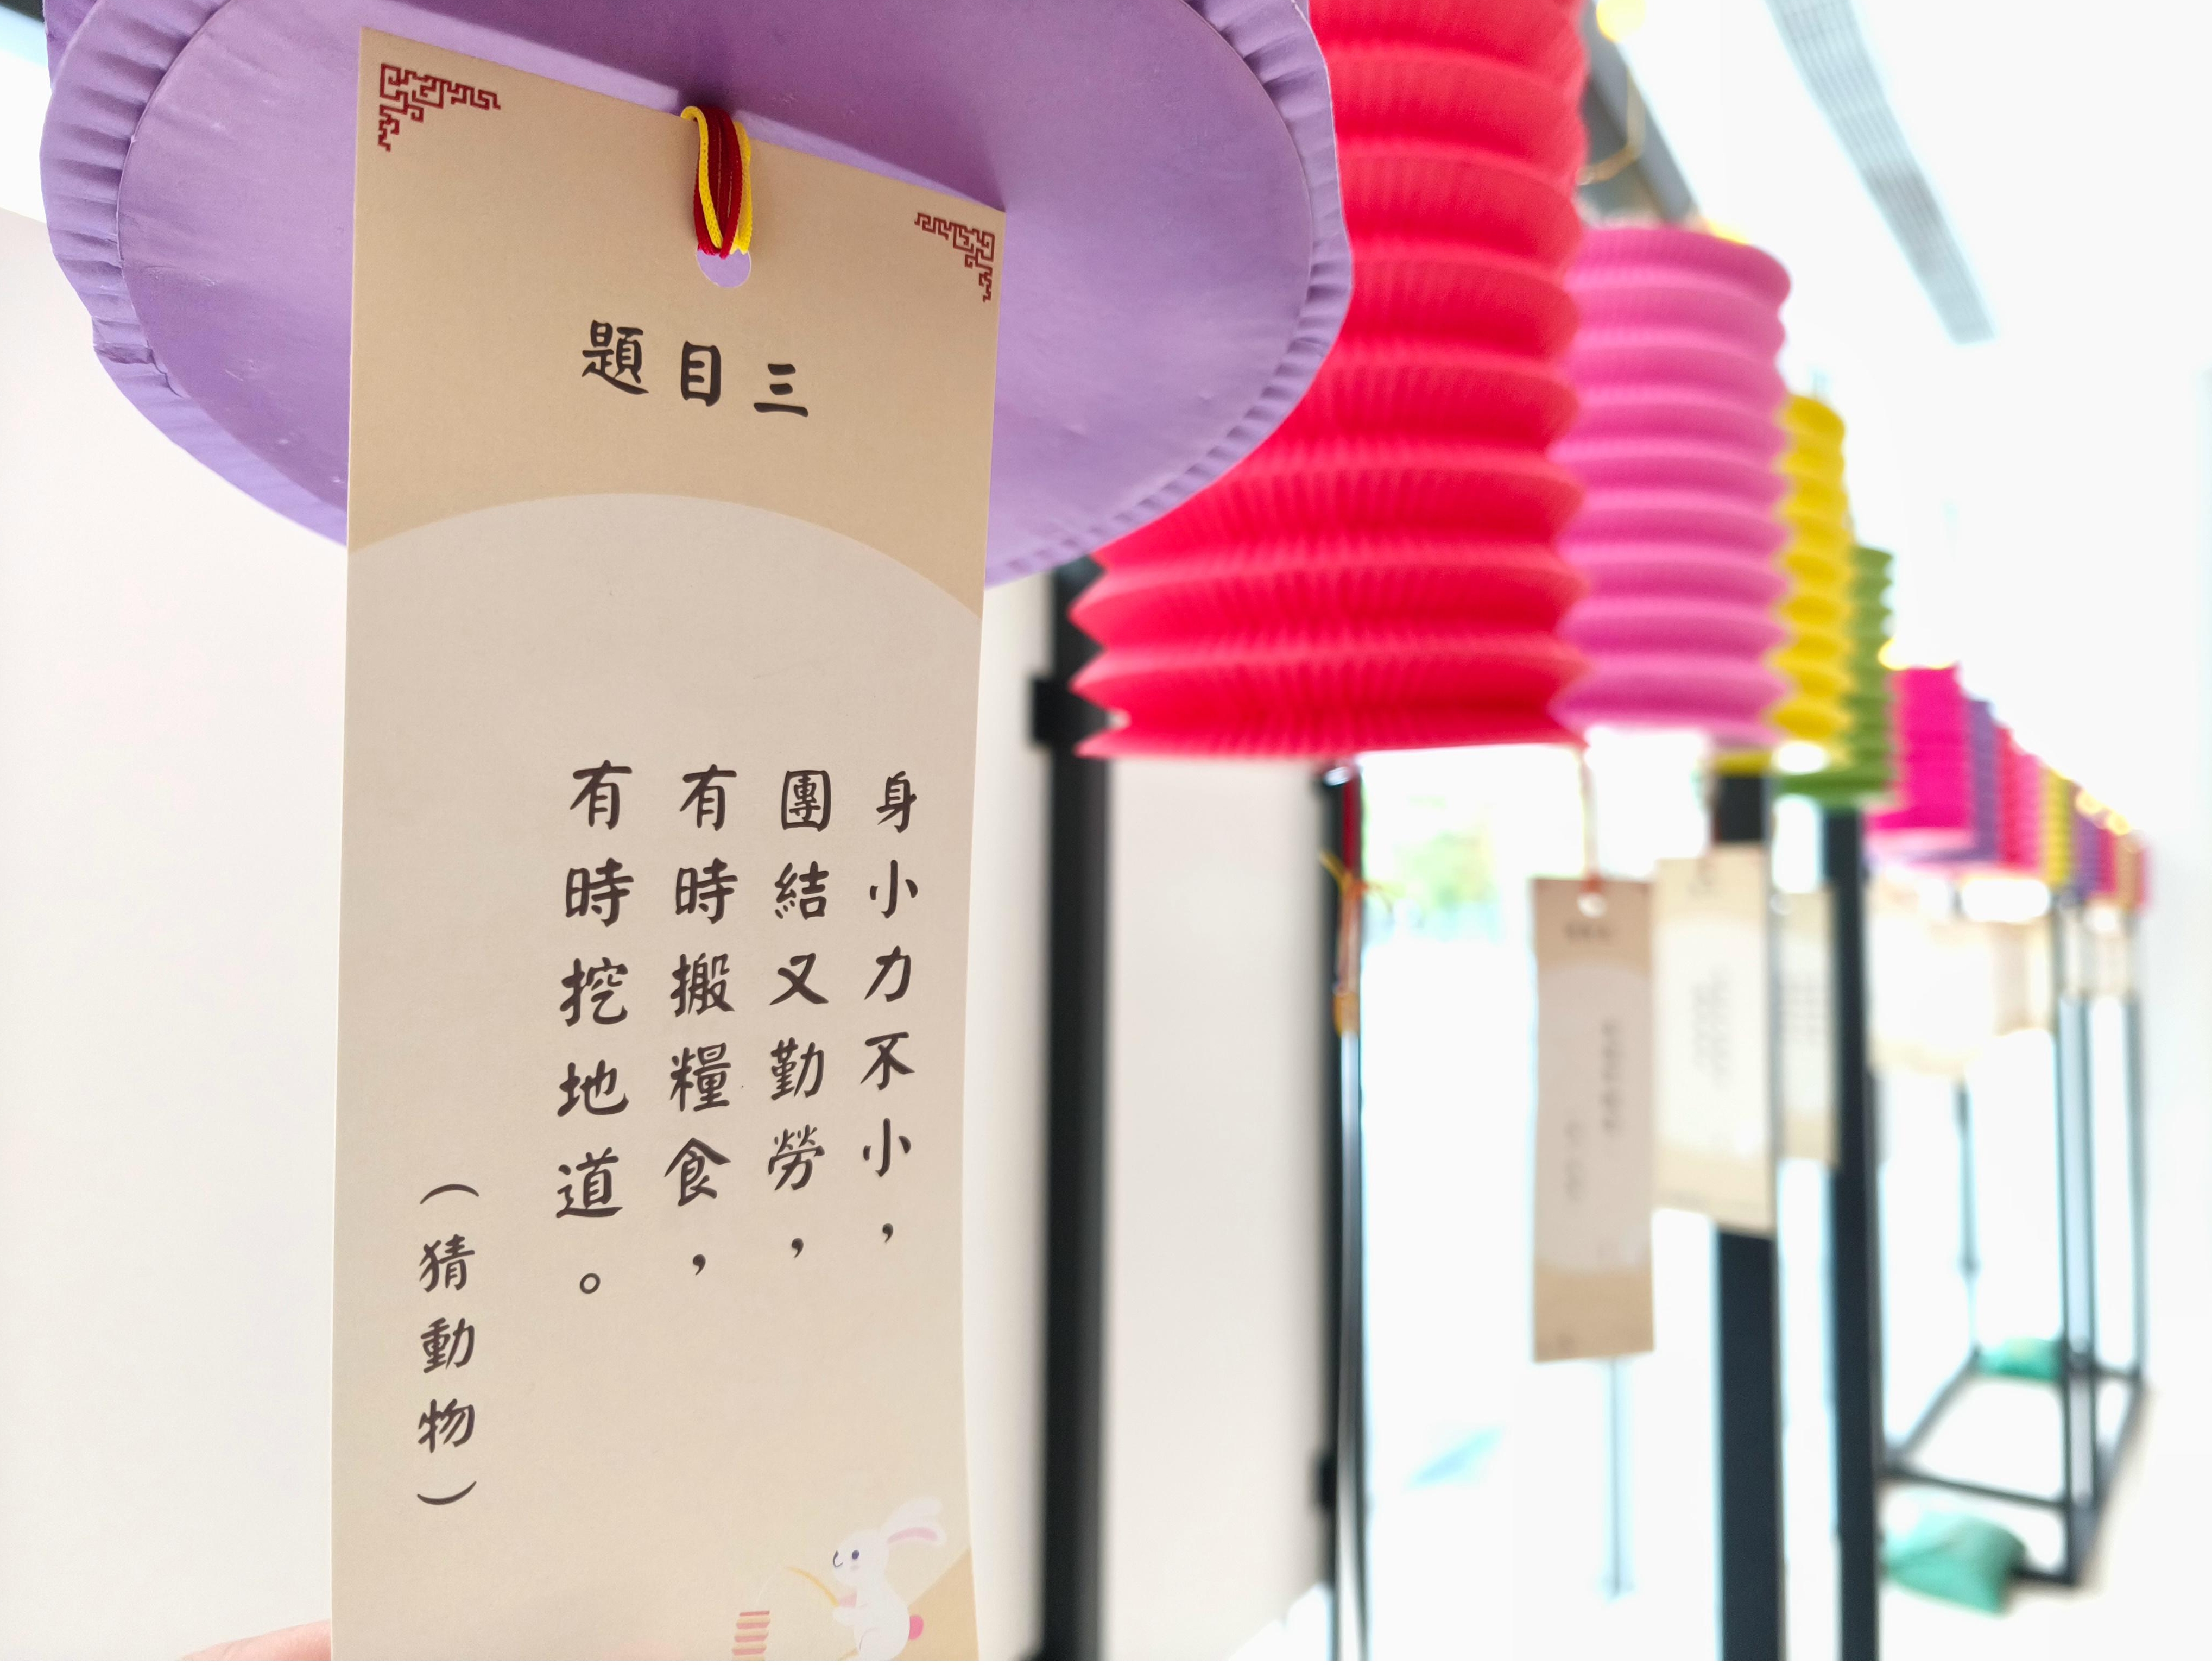 題目三
身小力不小，
團結又勤勞，
有時搬糧食，
有時挖地道。
（猜動物）